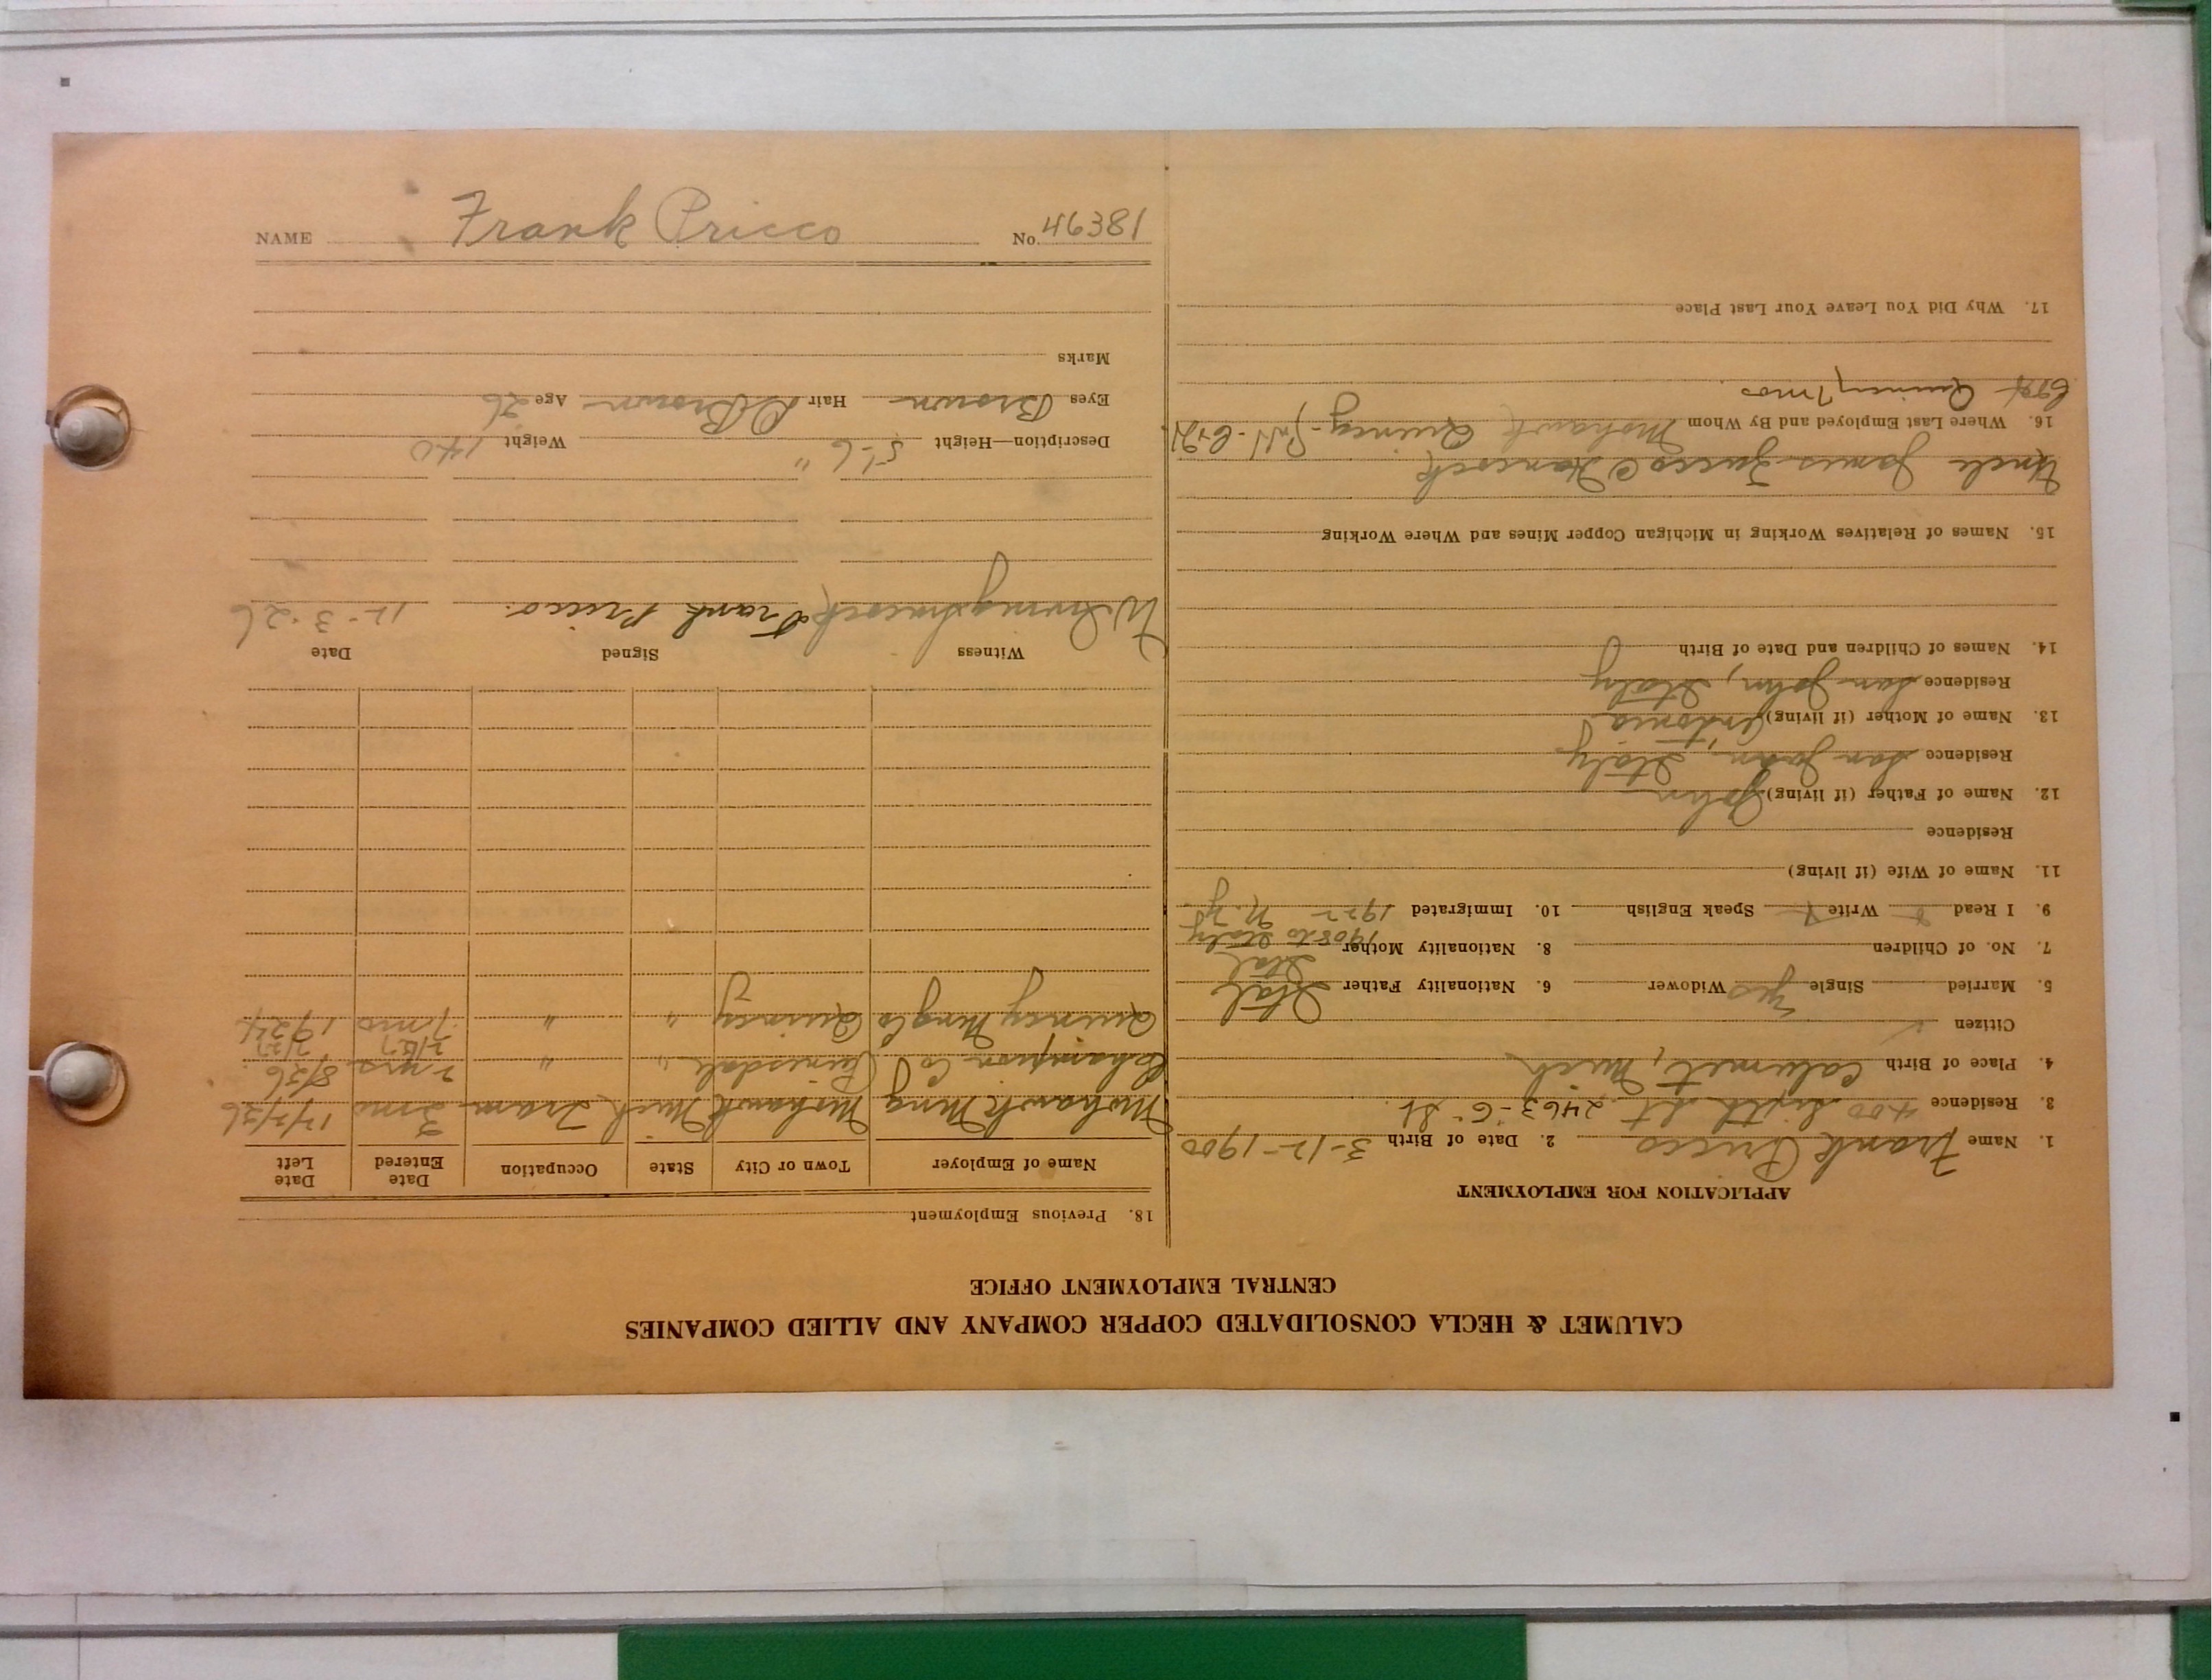 NAME Frank Pricco No. 46381
CALUMET & HECLA CONSOLIDATED COPPER COMPANY AND ALLIED COMPANIES
CENTRAL EMPLOYMENT OFFICE
APPLICATION FOR EMPLOYMENT
1. Name Frank Pricco 2. Date of Birth 3-12-1900
3. Residence 400 Sixth St 2463-6" St.
4. Place of Birth Calumet, Mich
Citizen
5. Married Single Yes Widower 6. Nationality Father Ital
7. No. of Children 8. Nationality Mother Ital
1908 to Italy
9. I Read Write Speak English 10. Immigrated 1922 N.Y.
11. Name of Wife (if living)
Residence
12. Name of Father (if living) John
Residence San Juan, Italy
13. Name of Mother (if living) Antonia
Residence San John, Italy
14. Names of Children and Date of Birth
15. Names of Relatives Working in Michigan Copper Mines and Where Working
Uncle James Zucco Hancock
16. Where Last Employed and By Whom Mohawk Quincy
Quincy 7 mos
17. Why Did You Leave Your Last Place
18. Previous Employment
Name of Employer Town or City State Occupation Date Entered Date Left
Mohawk Mng Mohawk Mich Tram 3 mo 12/2/26
Champion Co Painesdale " " 2 yrs 8/26
2/27
Quincy Mng Co Quincy " " 7 mo 1924
Witness Signed Date
Frank Pricco. 12-3-26
Description—Height 5'-6" Weight 140
Eyes Brown Hair D Brown Age 26
Marks